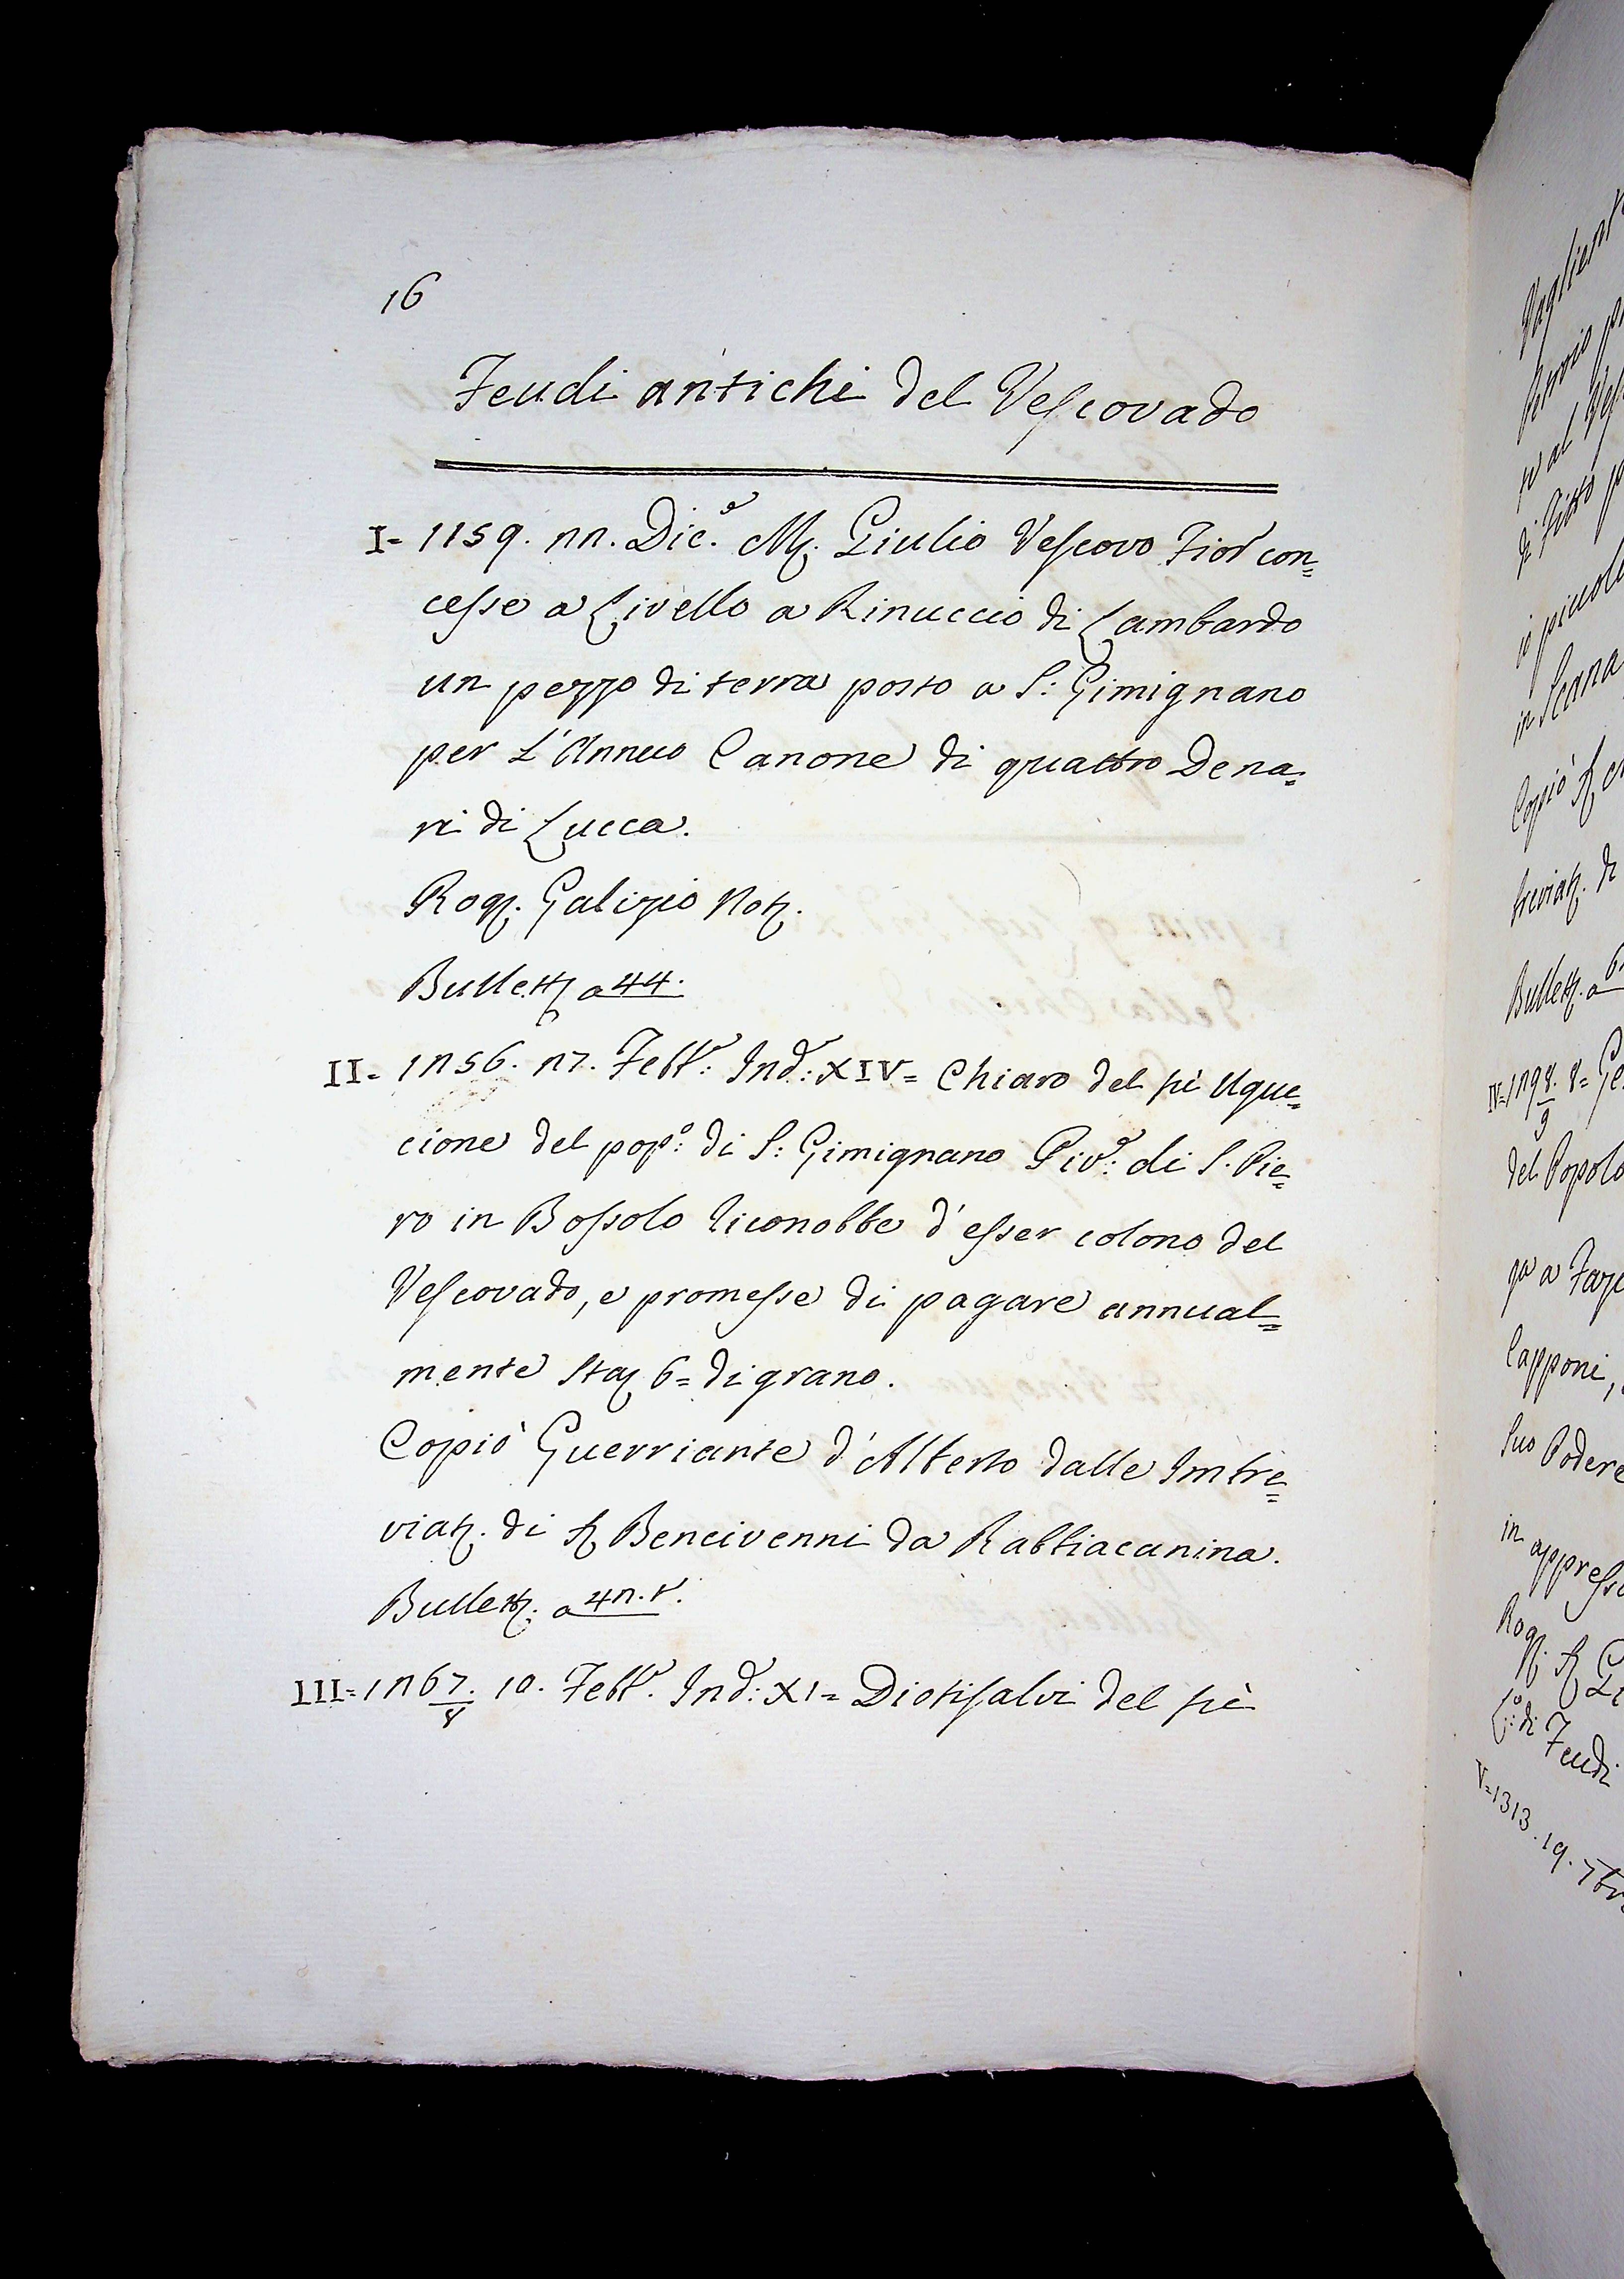 16
Feudi antichi del Vescovado
I= 1159. 22. Dic.e M. Giulio Vescovo Fior con=
cesse a Livello a Rinuccio di Lambardo
un pezzo di terra posto a S: Gimignano
per L'Annuo Canone di quattro Dena=
ri di Lucca.
Rog. Galizio Not.
Bullett. a 44.
II= 1256. 27. Febb.o: Ind.e: XIV= Chiaro del fù Ugue=
cione del pop.o: di S: Gimignano Piv.e: di S. Pie=
ro in Bossolo riconobbe d'esser colono del
Vescovado, e promesse di pagare annual=
mente Sta 6= di grano.
Copiò Guerriante d'Alberto dalle Imbre=
viat. di S. Bencivenni da Rabbiacanina.
Bullett. a 42. t.
III= 1267./8 10. Febb.o. Ind.e: XI= Diotisalvi del fù
Vaglient
in Scana
Copiò
breviat. di
Bullett. a 6
IV= 1298./9 8= Ge
del Popolo
Capponi,
suo Podere
in appresso
Rog. S.
L.o: di Feudi
V= 1313. 19. 7br